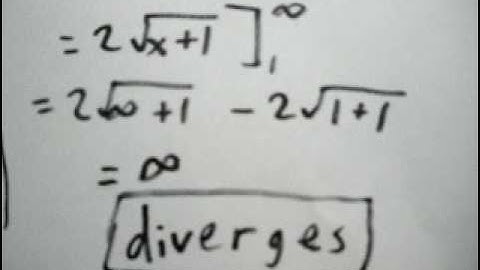 = 2√(x+1) ]₁^∞
= 2√(∞+1) - 2√(1+1)
= ∞
diverges